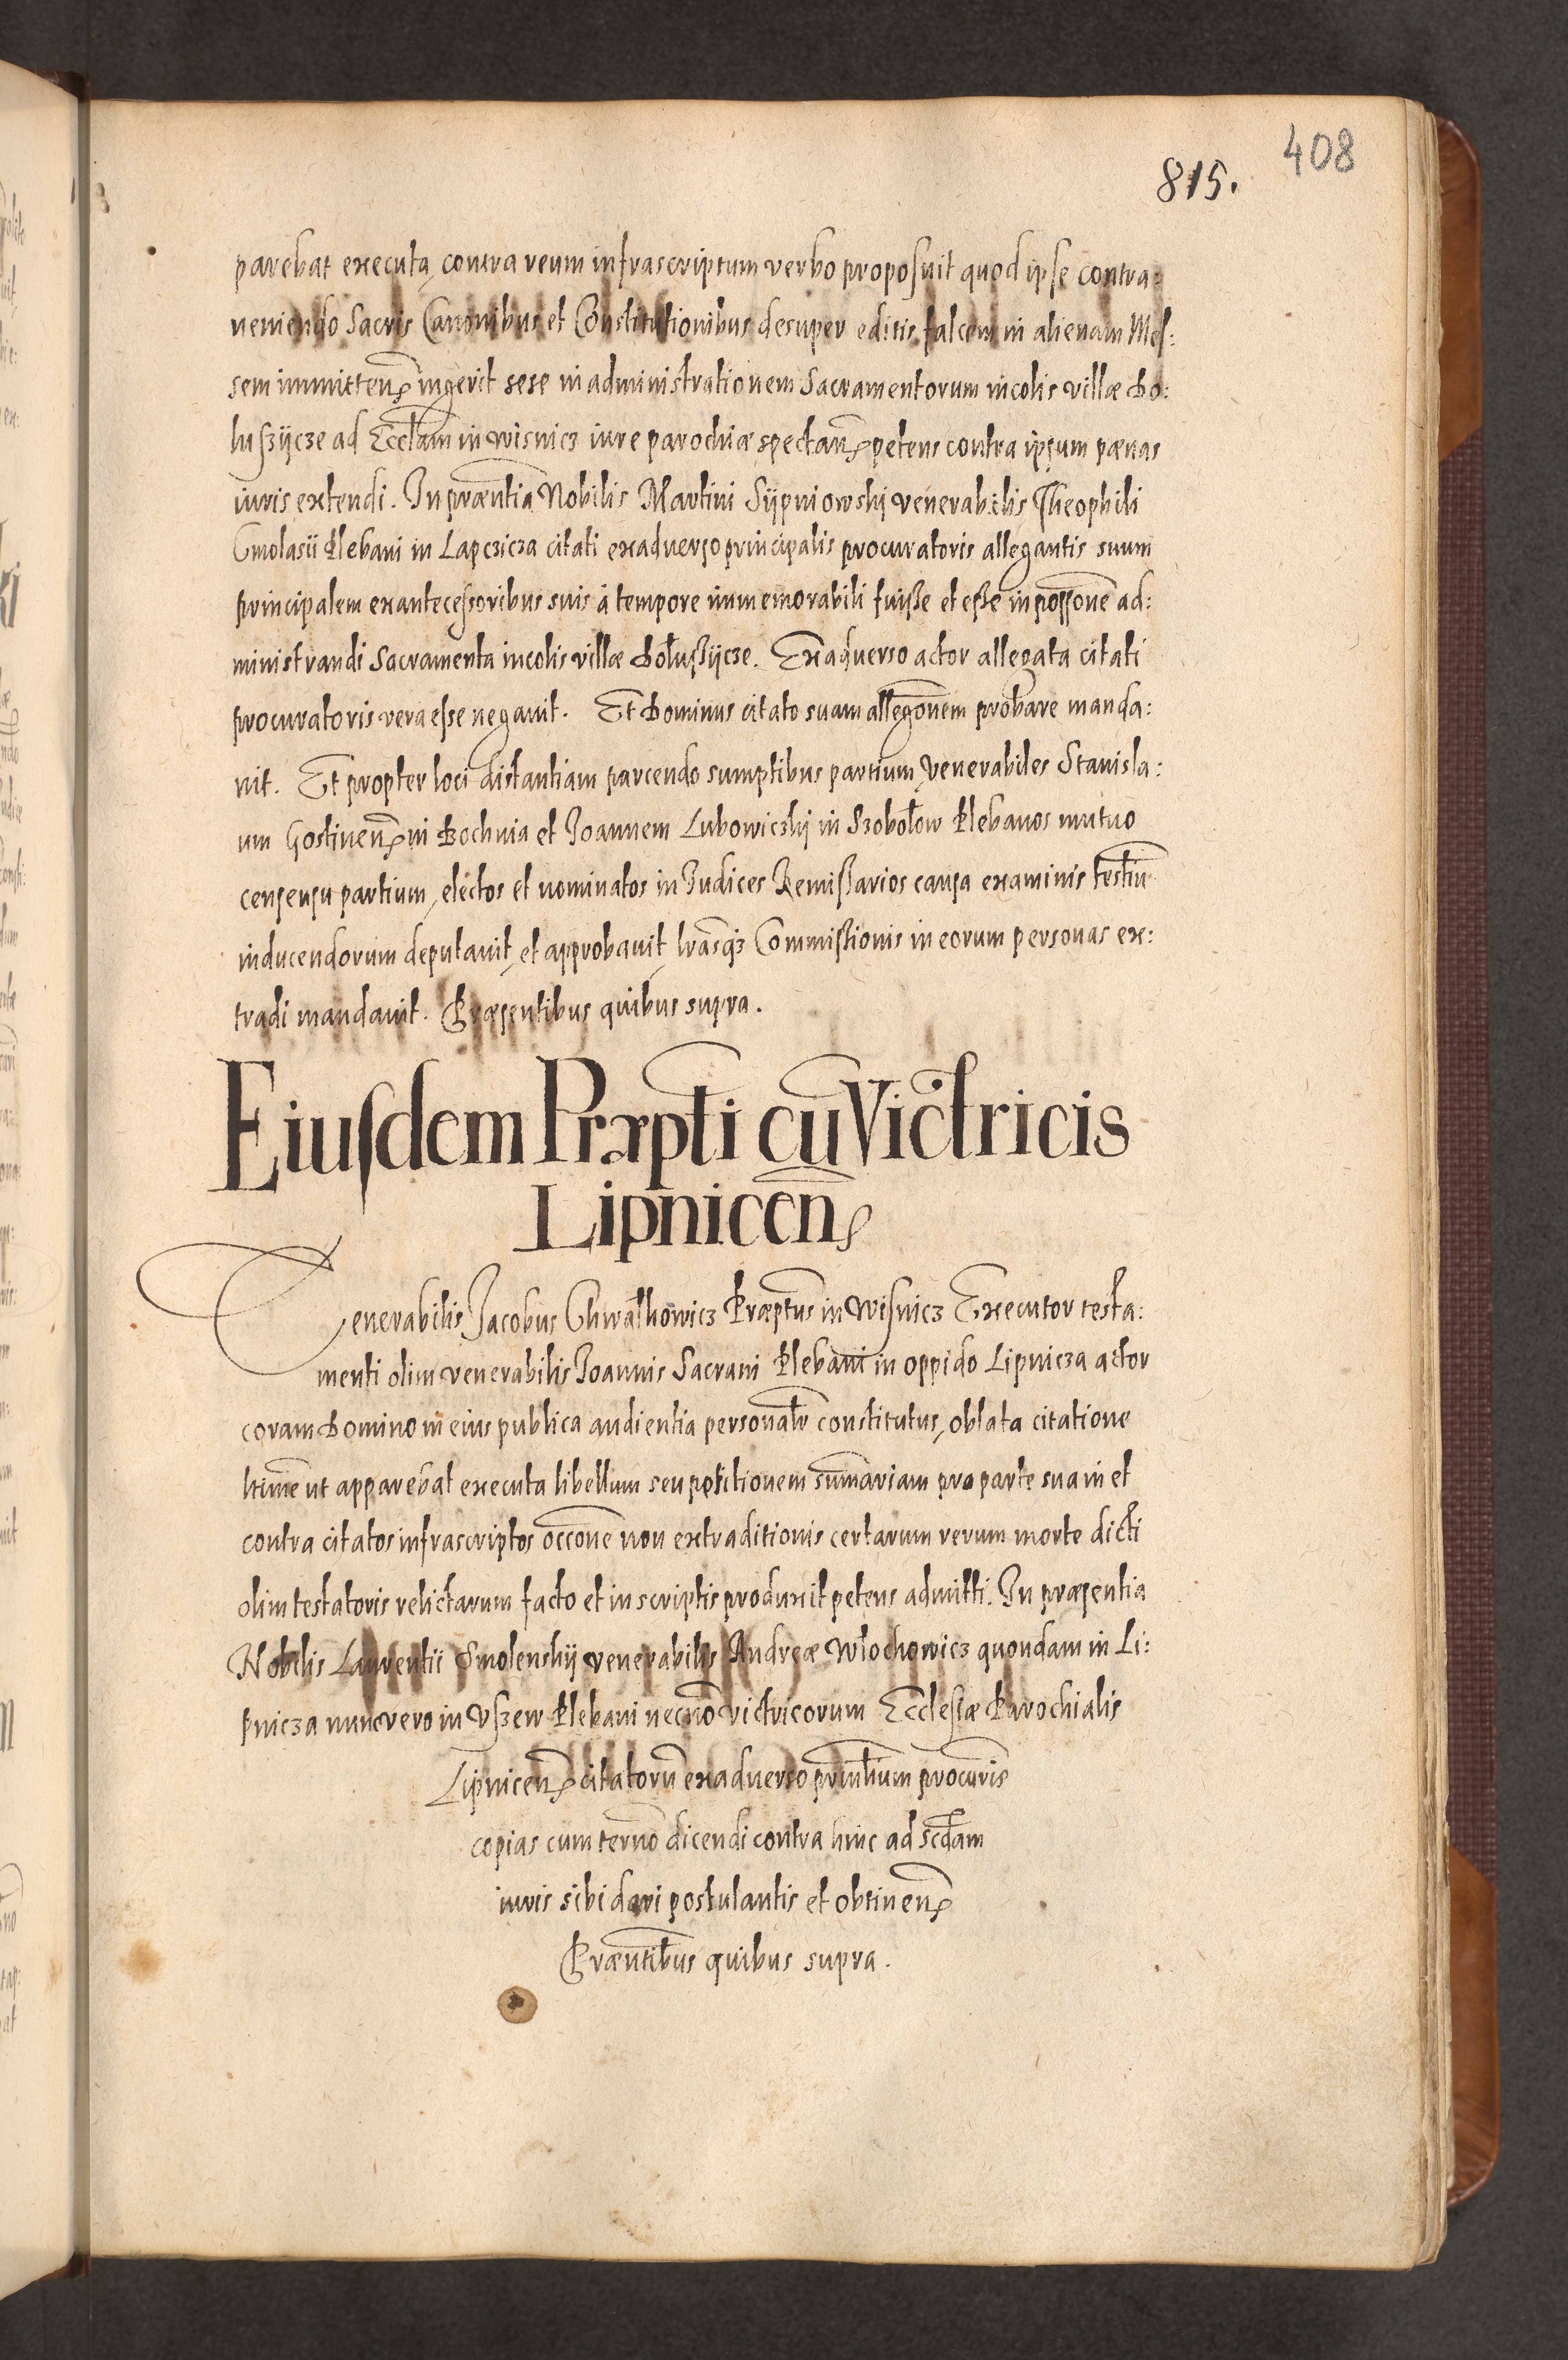 408
815.
parebat executa, contra reum infrascriptum verbo proposuit quod ipse contra:
veniendo Sacris Canonibus et Constitutionibus desuper editis falcem in alienam Mes:
sem immitteñ ingerit sese in administrationem Sacramentorum incolis villæ Bo:
lussÿcze ad Eccl̃am in Wisnicz iure parochiæ spectañ petens contra ipsum pænas
iuris extendi. In præñtia Nobilis Martini Sÿpniowskÿ venerabilis Theophili
Gmolasii Plebani in Lapczicza citati exaduerso principalis procuratoris allegantis suum
principalem ex antecessoribus suis à tempore immemorabili fuisse et esse in possõne ad:
ministrandi Sacramenta incolis villæ Bolussÿcze. Exaduerso actor allegata citati
procuratoris vera esse negauit. Et Dominus citato suam allegõnem probare manda:
uit. Et propter loci distantiam parcendo sumptibus partium, Venerabiles Stanisla:
um Gostineñ in Bochnia et Joannem Lubowiczkÿ in Szobolow Plebanos mutuo
censensu partium, electos et nominatos in Judices Remissarios causa examinis testiu̅
inducendorum deputauit, et approbauit, lr̃asq₃ Commissionis in eorum personas ex:
tradi mandauit. Præsentibus quibus supra.
Eiusdem Præpti cu̅ Victricis
Lipniceñ
Venerabilis Jacobus Chwalkowicz Præptus in Wisnicz Executor testa:
menti olim venerabilis Joannis Sacrani Plebani in oppido Lipnicza actor
coram Domino in eius publica audientia personalr̃ constitutus, oblata citatione
ltime ut apparebat executa libellum seu petitionem summariam pro parte sua in et
contra citatos infrascriptos occõne non extraditionis certarum rerum morte dicti
olim testatoris relictarum facto et in scriptis produxit petens admitti. In præsentia
Nobilis Laurentii Smolenskÿ venerabilis Andreæ Wlochowicz quondam in Li:
pnicza nunc vero in Uszew Plebani necno̅ victricorum Ecclesiæ Parochialis
Lipniceñ citatoru̅ exaduerso prinlium procuris
copias cum termo dicendi contra hinc ad scdam
iuris sibi dari postulantis et obtineñ
Præñtibus quibus supra.